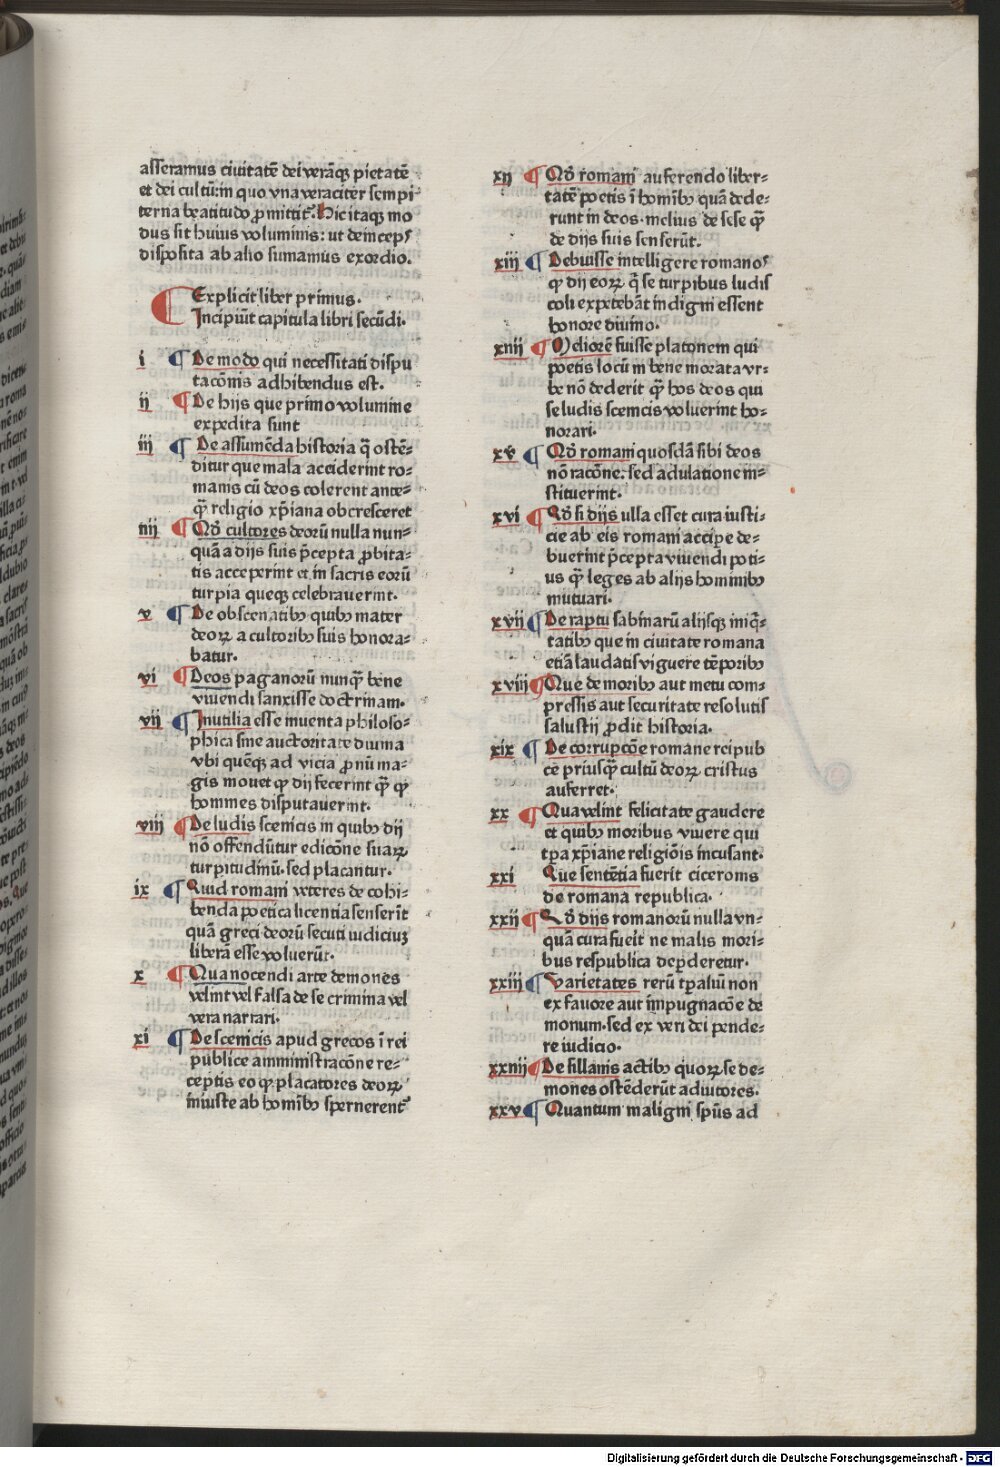 asseramus ciuitatē dei verāqꝫ pietatē
et dei cultū: in quo vna veraciter sempi
terna beatitudo ꝓmittit᷑. Hic itaqꝫ mo
dus sit huius voluminis: ut deincepſ
disposita ab alio sumamus exordio.
Explicit liber primus.
Incipiūt capitula libri secūdi.
i De modo qui necessitati dispu
tacōnis adhibendus est.
ii De hijs que primo volumine
expedita sunt
iii De assumēda historia q̄ ostē⸗
ditur que mala acciderint ro⸗
manis cū deos colerent ante⸗
qꝫ̄ religio xp̄iana obcresceret
iiij Qd̕ cultores deorū nulla nun⸗
quā a dijs suis p̄cepta ꝓbita⸗
tis acceperint et in sacris eorū
turpia queqꝫ celebrauerint.
v De obscenatibꝰ quibꝰ mater
deoꝝ a cultoribꝰ suis honora⸗
batur.
vi Deos paganorū nunqꝫ̄ bene
viuendi sanxisse doctrinam.
vii Inutilia esse inuenta philoso⸗
phica sine auctoritate diuina
vbi quēqꝫ ad vicia ꝓnū ma⸗
gis mouet ꝙ dij fecerint qꝫ̄ ꝙ
homines disputauerint.
viii De ludis scenicis in quibꝰ dij
nō offendūtur edicōne suaꝝ
turpitudinū. sed placantur.
ix Quid romani veteres de cohi⸗
benda poetica licentia senserīt
quā greci deorū secuti iudiciuꝫ
liberā esse voluerūt.
x Qua nocendi arte demones
velint vel falsa de se crimina vel
vera narrari.
xi De scenicis apud grecos ī rei
publice amministracōne re⸗
ceptis eo ꝙ placatores deoꝝ
iniuste ab hoīnibꝰ spernerent᷑
xij Qd̕ romani auferendo liber⸗
tatē poetis ī hoīnibꝰ quā dede⸗
runt in deos. melius de sese qꝫ̄
de dijs suis senserūt.
xiij Debuisse intelligere romanoſ
ꝙ dij eoꝝ q̄ se turpibus ludis
coli expetebāt indigni essent
honore diuino.
xiiij Meliorē fuisse platonem qui
poetis locū in bene morata vr⸗
be nō dederit qꝫ̄ hos deos qui
se ludis scenicis voluerint ho⸗
norari.
xv Qd̕ romani quosdā sibi deos
nō racōne: sed adulatione in⸗
stituerint.
xvi Qd̕ si dijs ulla esset cura iusti⸗
cie ab eis romani accipe de⸗
buerint p̄cepta viuendi poti⸗
us qꝫ̄ leges ab alijs hominibꝰ
mutuari.
xvii De raptu sabinarū alijsqꝫ iniq̄⸗
tatibꝰ que in ciuitate romana
etiā laudatis viguere tēporibꝰ
xviij Que de moribꝰ aut metu com⸗
pressis aut securitate resolutis
salustij ꝓdit historia.
xix De corrupcōe romane reipub
ce priusqꝫ̄ cultū deoꝝ cristus
auferret.
xx Qua velint felicitate gaudere
et quibꝰ moribus viuere qui
tp̄a xp̄iane religiōis incusant.
xxi Que sentētia fuerit ciceronis
de romana republica.
xxij Qd̕ dijs romanorū nulla vn⸗
quā cura fueit ne malis mori⸗
bus respublica deperderetur.
xxiij Varietates rerū tp̄aliū non
ex fauore aut impugnacōe de
monum. sed ex veri dei pende⸗
re iudicio.
xxiiij De sillanis actibꝰ quoꝝ se de⸗
mones ostēderūt adiutores.
xxv Quantum maligni sp̄us ad
Digitalisierung gefördert durch die Deutsche Forschungsgemeinschaft - DFG